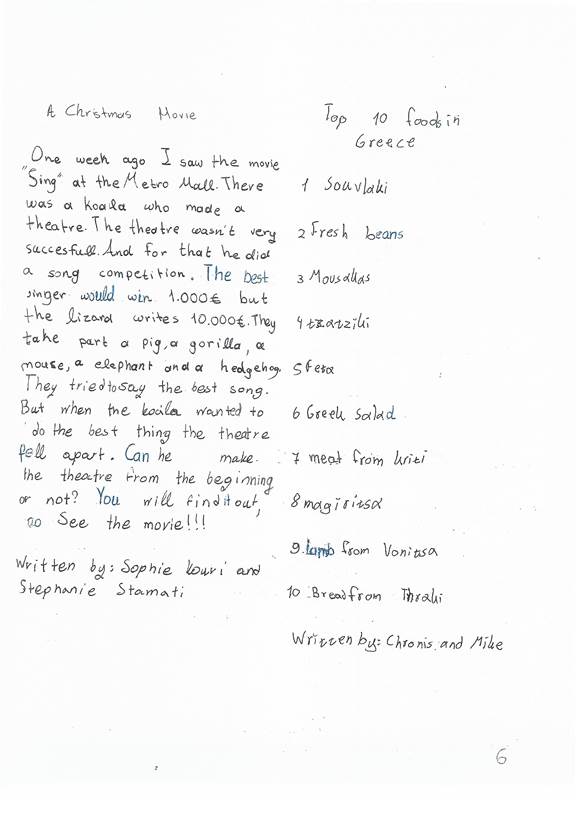 A Christmas Movie
One week ago I saw the movie
"Sing" at the Metro Mall. There
was a koala who made a
theatre. The theatre wasn't very
succesfull. And for that he did
a song competition. The best
singer would win 1.000€ but
the lizard writes 10.000€. They
take part a pig, a gorilla, a
mouse, a elephant and a hedgehog.
They tried to say the best song.
But when the koala wanted to
do the best thing the theatre
fell apart. Can he make
the theatre from the beginning
or not? You will find it out,
so See the movie!!!
Written by: Sophie Kouri and
Stephanie Stamati
Top 10 foods in
Greece
1 Souvlaki
2 Fresh beans
3 Mousakas
4 tzatziki
5 feta
6 Greek Salad
7 meat from kriti
8 magiritsa
9. lamb from Vonitsa
10 .Bread from Thraki
Written by: Chronis and Mike
6